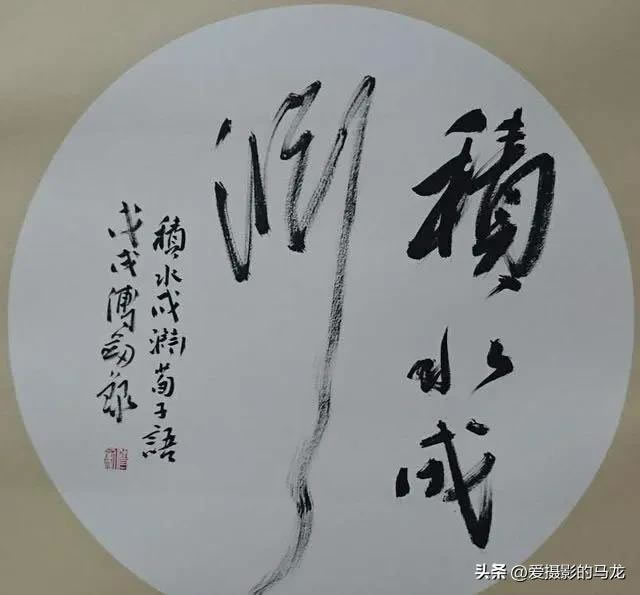 積水成
淵
積水成淵荀子語
戊戌傅剑錄
头条 @爱摄影的马龙